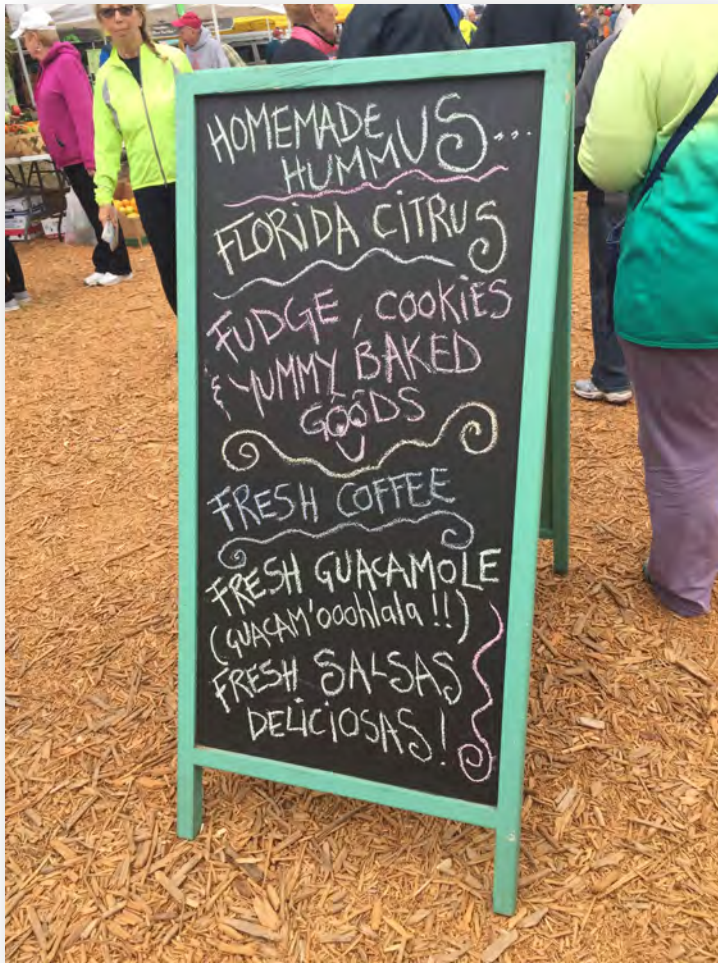 HOMEMADE
HUMMUS...
FLORIDA CITRUS
FUDGE, COOKIES
& YUMMY BAKED
GOODS
FRESH COFFEE
FRESH GUACAMOLE
(GUACAM'OOOhlala!!)
FRESH SALSAS
DELICIOSAS!